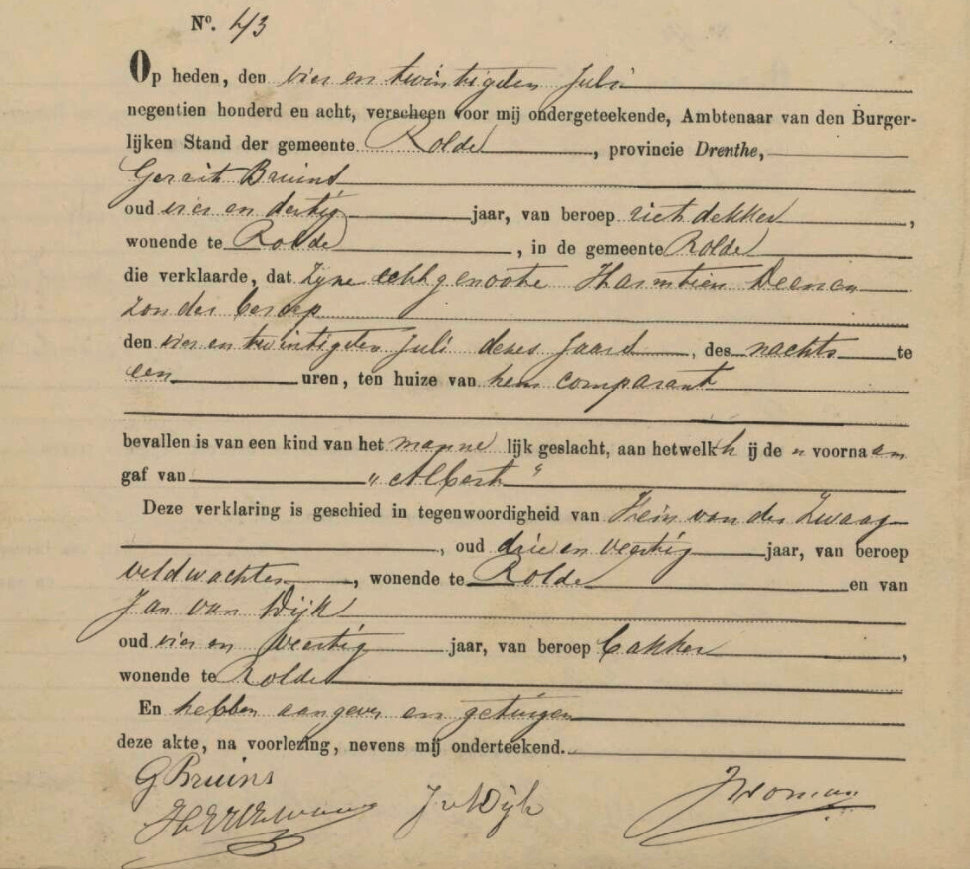 No. 43
Op heden, den vier en twintigsten Juli
negentien honderd en acht, verscheen voor mij ondergeteekende, Ambtenaar van den Burger-
lijken Stand der gemeente Rolde, provincie Drenthe,
Gerrit Bruins
oud vier en dertig jaar, van beroep rietdekker,
wonende te Rolde, in de gemeente Rolde
die verklaarde, dat zijne echtgenoote Harmtien Deenen
zonder beroep
den vier en twintigsten Juli dezes jaars, des nachts te
een uren, ten huize van hem comparant
bevallen is van een kind van het mannelijk geslacht, aan hetwelk hij de n voornaam
gaf van "Albert"
Deze verklaring is geschied in tegenwoordigheid van Hein van der Zwaag
, oud drie en veertig jaar, van beroep
veldwachter, wonende te Rolde en van
Jan van Wijk
oud vier en veertig jaar, van beroep bakker,
wonende te Rolde
En hebben aangever en getuigen
deze akte, na voorlezing, nevens mij onderteekend.
G Bruins
J v Wijk